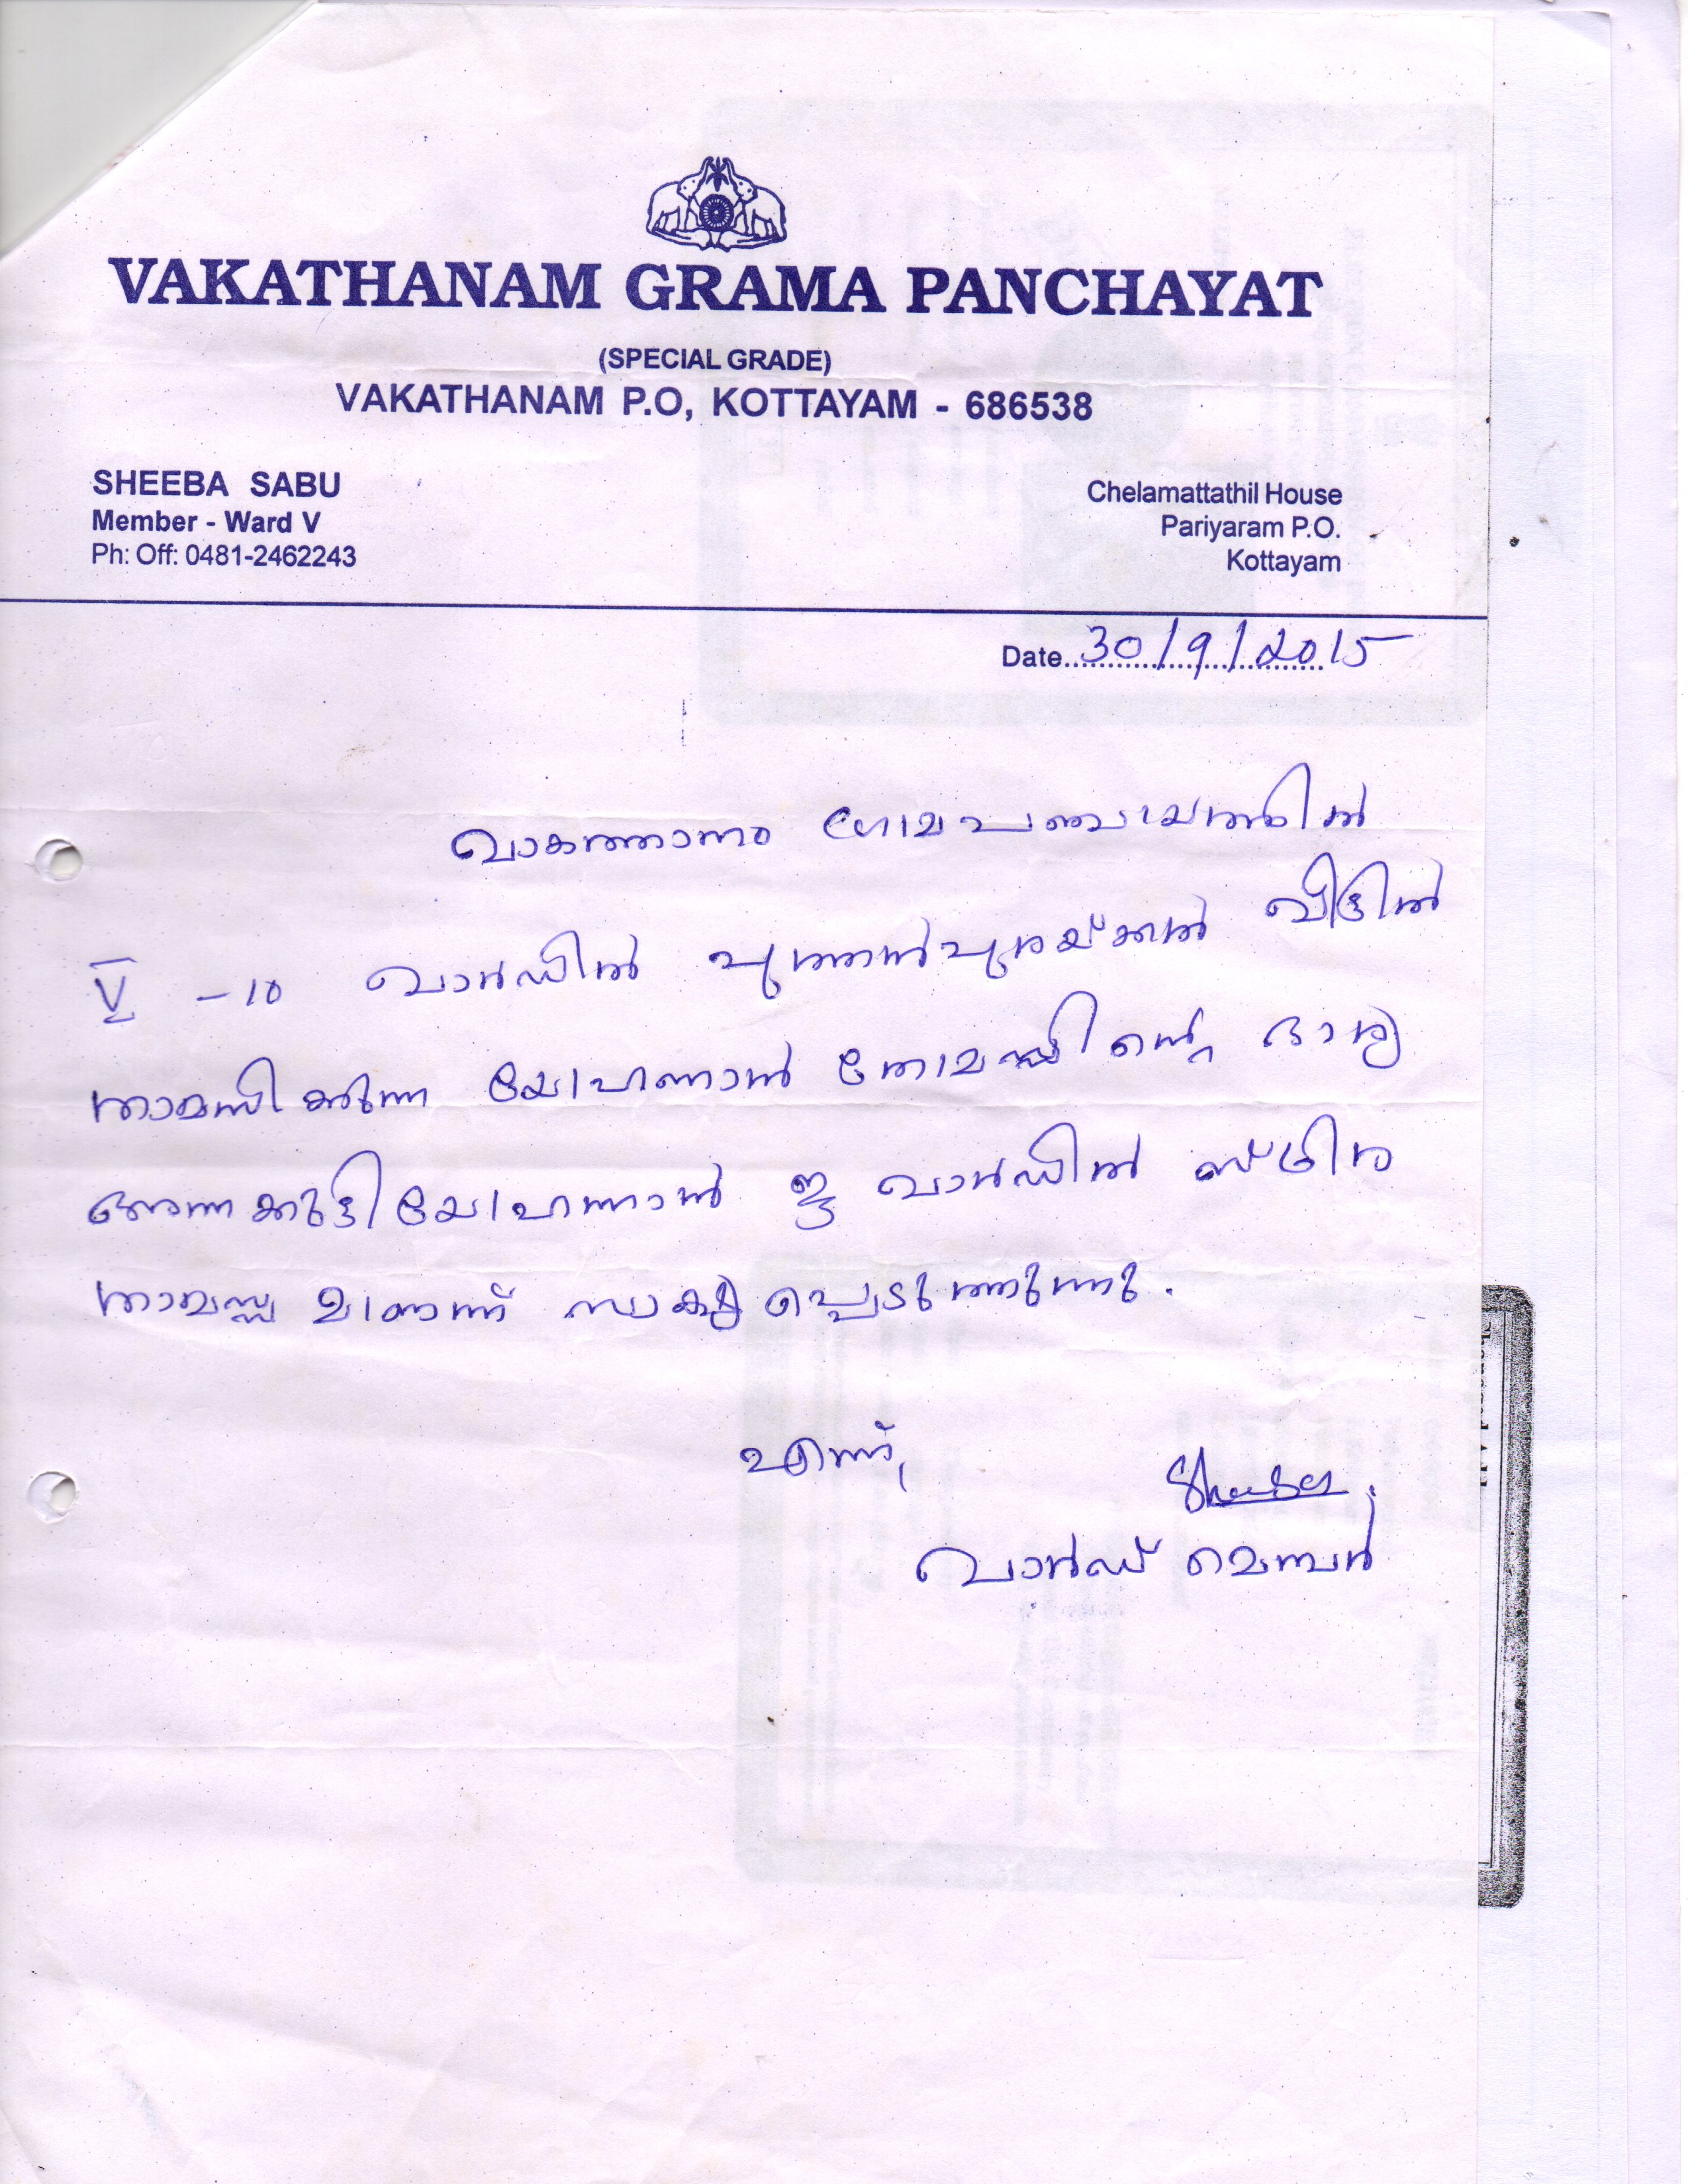 VAKATHANAM GRAMA PANCHAYAT
(SPECIAL GRADE)
VAKATHANAM P.O, KOTTAYAM - 686538
SHEEBA SABU
Member - Ward V
Ph: Off: 0481-2462243
Chelamattathil House
Pariyaram P.O.
Kottayam
Date 30/9/2015
വാകത്താനം ഗ്രാമപഞ്ചായത്തിൽ
V -10 വാർഡിൽ പുത്തൻപുരയ്ക്കൽ വീട്ടിൽ
താമസിക്കുന്ന യോഹന്നാൻ തോമസ്സിന്റെ ഭാര്യ
അന്നക്കുട്ടി യോഹന്നാൻ ഈ വാർഡിൽ സ്ഥിര
താമസ്സ മാണന്ന് സാക്ഷ്യപ്പെടുത്തുന്നു.
എന്ന്,
Sheeba
വാർഡ് മെമ്പർ